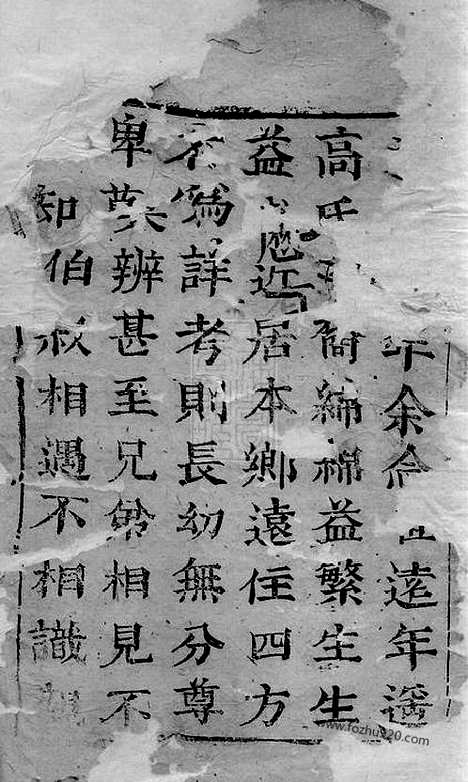 年余 世遠年遥
高氏 綿綿益繁生生
益 近居本鄉遠住四方
不為詳考則長幼無分尊
卑莫辨甚至兄弟相見不
知伯叔相遇不相識
www.fozhu920.com